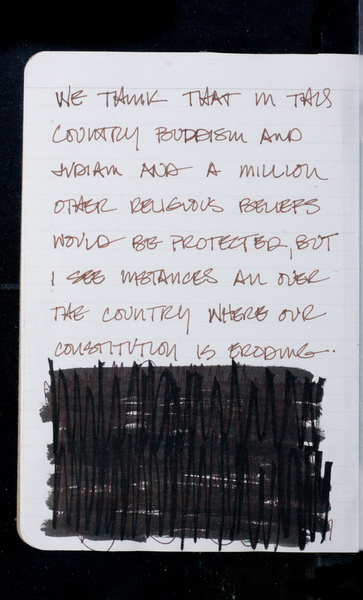 WE THINK THAT IN THIS
COUNTRY BUDDISM AND
INDIAM AND A MILLION
OTHER RELIGIOUS BELIEFS
WOULD BE PROTECTED, BUT
I SEE INSTANCES ALL OVER
THE COUNTRY WHERE OUR
CONSTITUTION IS ERODING.